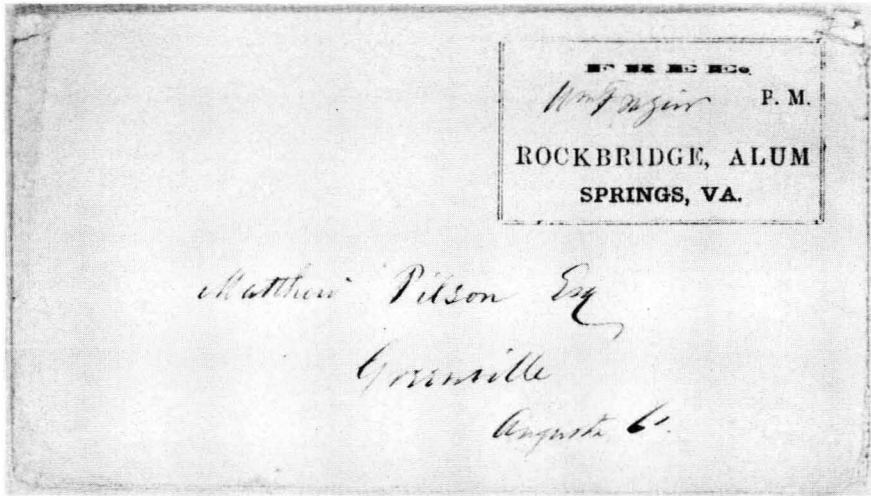 FREE.
Wm Frazier P. M.
ROCKBRIDGE, ALUM
SPRINGS, VA.
Matthew Pilson Esq
Greenville
Augusta Co.